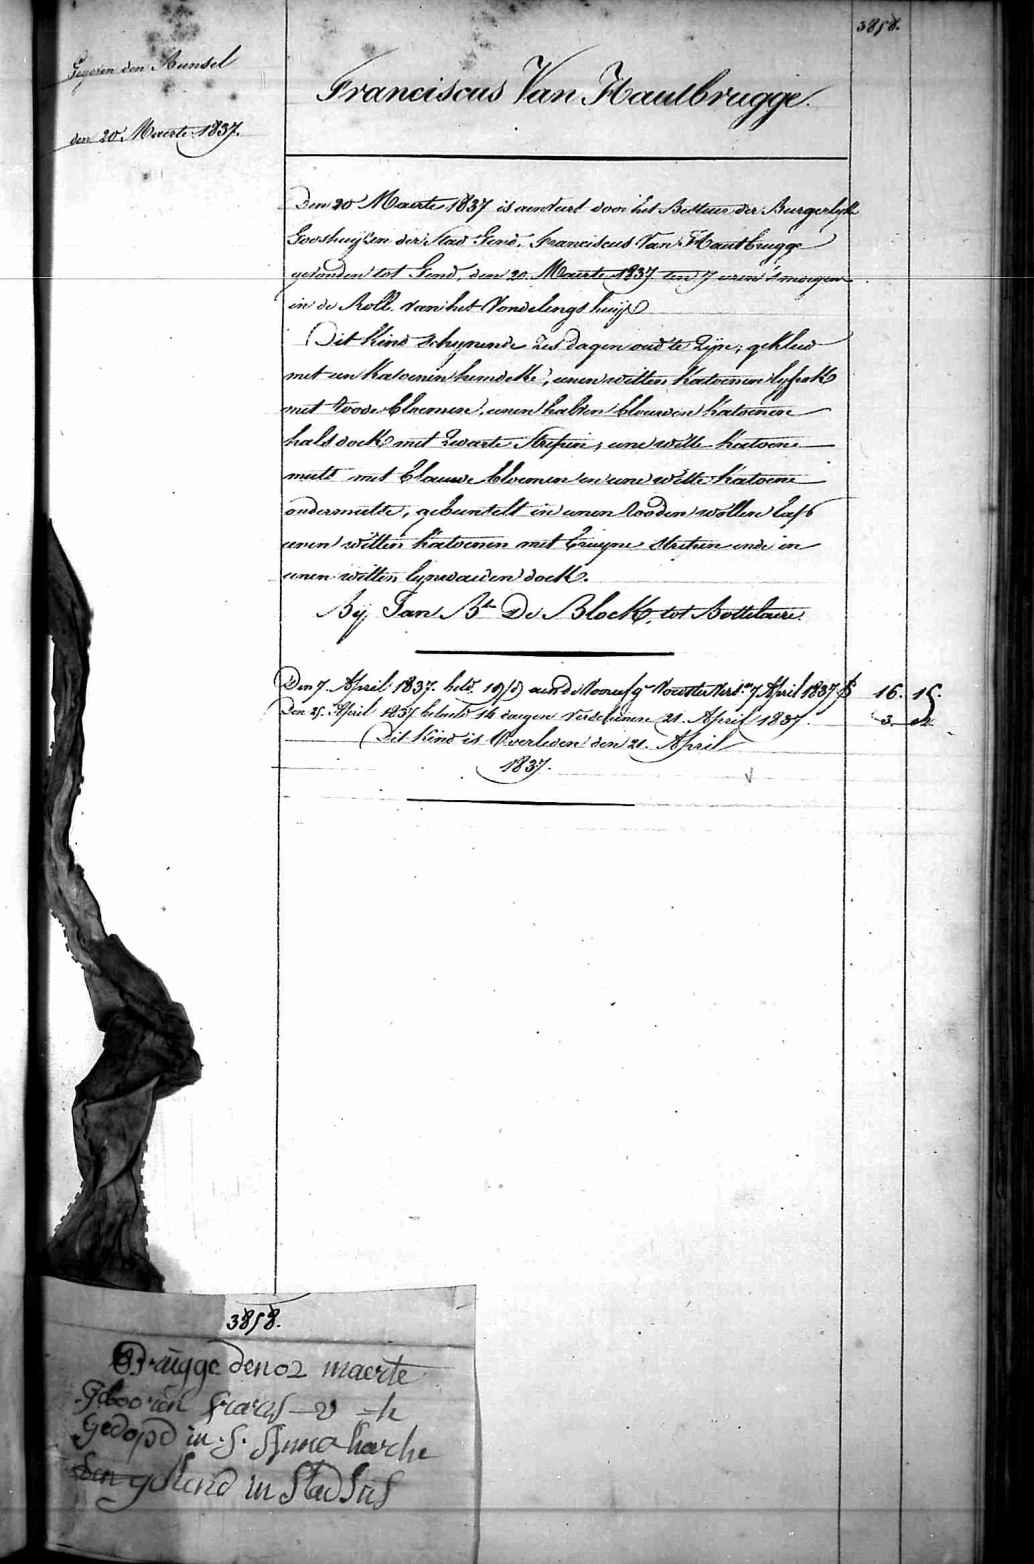 3858.
Gegeven den Stempel
den 20 Maerte 1837.
Franciscus Van Hautbrugge.
Den 20 Maerte 1837 is aenveert door het Bestuur der Burgerlyke
Godshuyzen der Stad Gend, Franciscus Van Hautbrugge
gevonden tot Gend, den 20 Maerte 1837 ten 7 uren 's morgens
in de Rolle van het Vondelingshuijs
Dit kind schynende zes dagen oud te zyn; gekleed
met een katoenen hemdeke, eenen witten katoenen lyfrok
met roode bloemen, eenen katoenen
halsdoek met zwarte strepen, eene witte katoene
muts met blauwe bloemen en eene witte katoene
ondermutse, gebuntelt in eenen rooden wollen
eenen witten katoenen met bruyne strepen ende in
eenen witten lynwaeden doek.
By Jan Bte De Block, tot Bottelaere.
Den 7. April 1837. aen de Voorster Vers. 7 April 1837 16. 15.
Den 25. April 1837 betaelt 14 dagen verschenen 21. April 1837. 3.
Dit kind is Overleden den 21. April
1837.
3858.
Brügge den 02 maerte
Gebooren
Gedopd in S. Anna karke
gestend in Stad